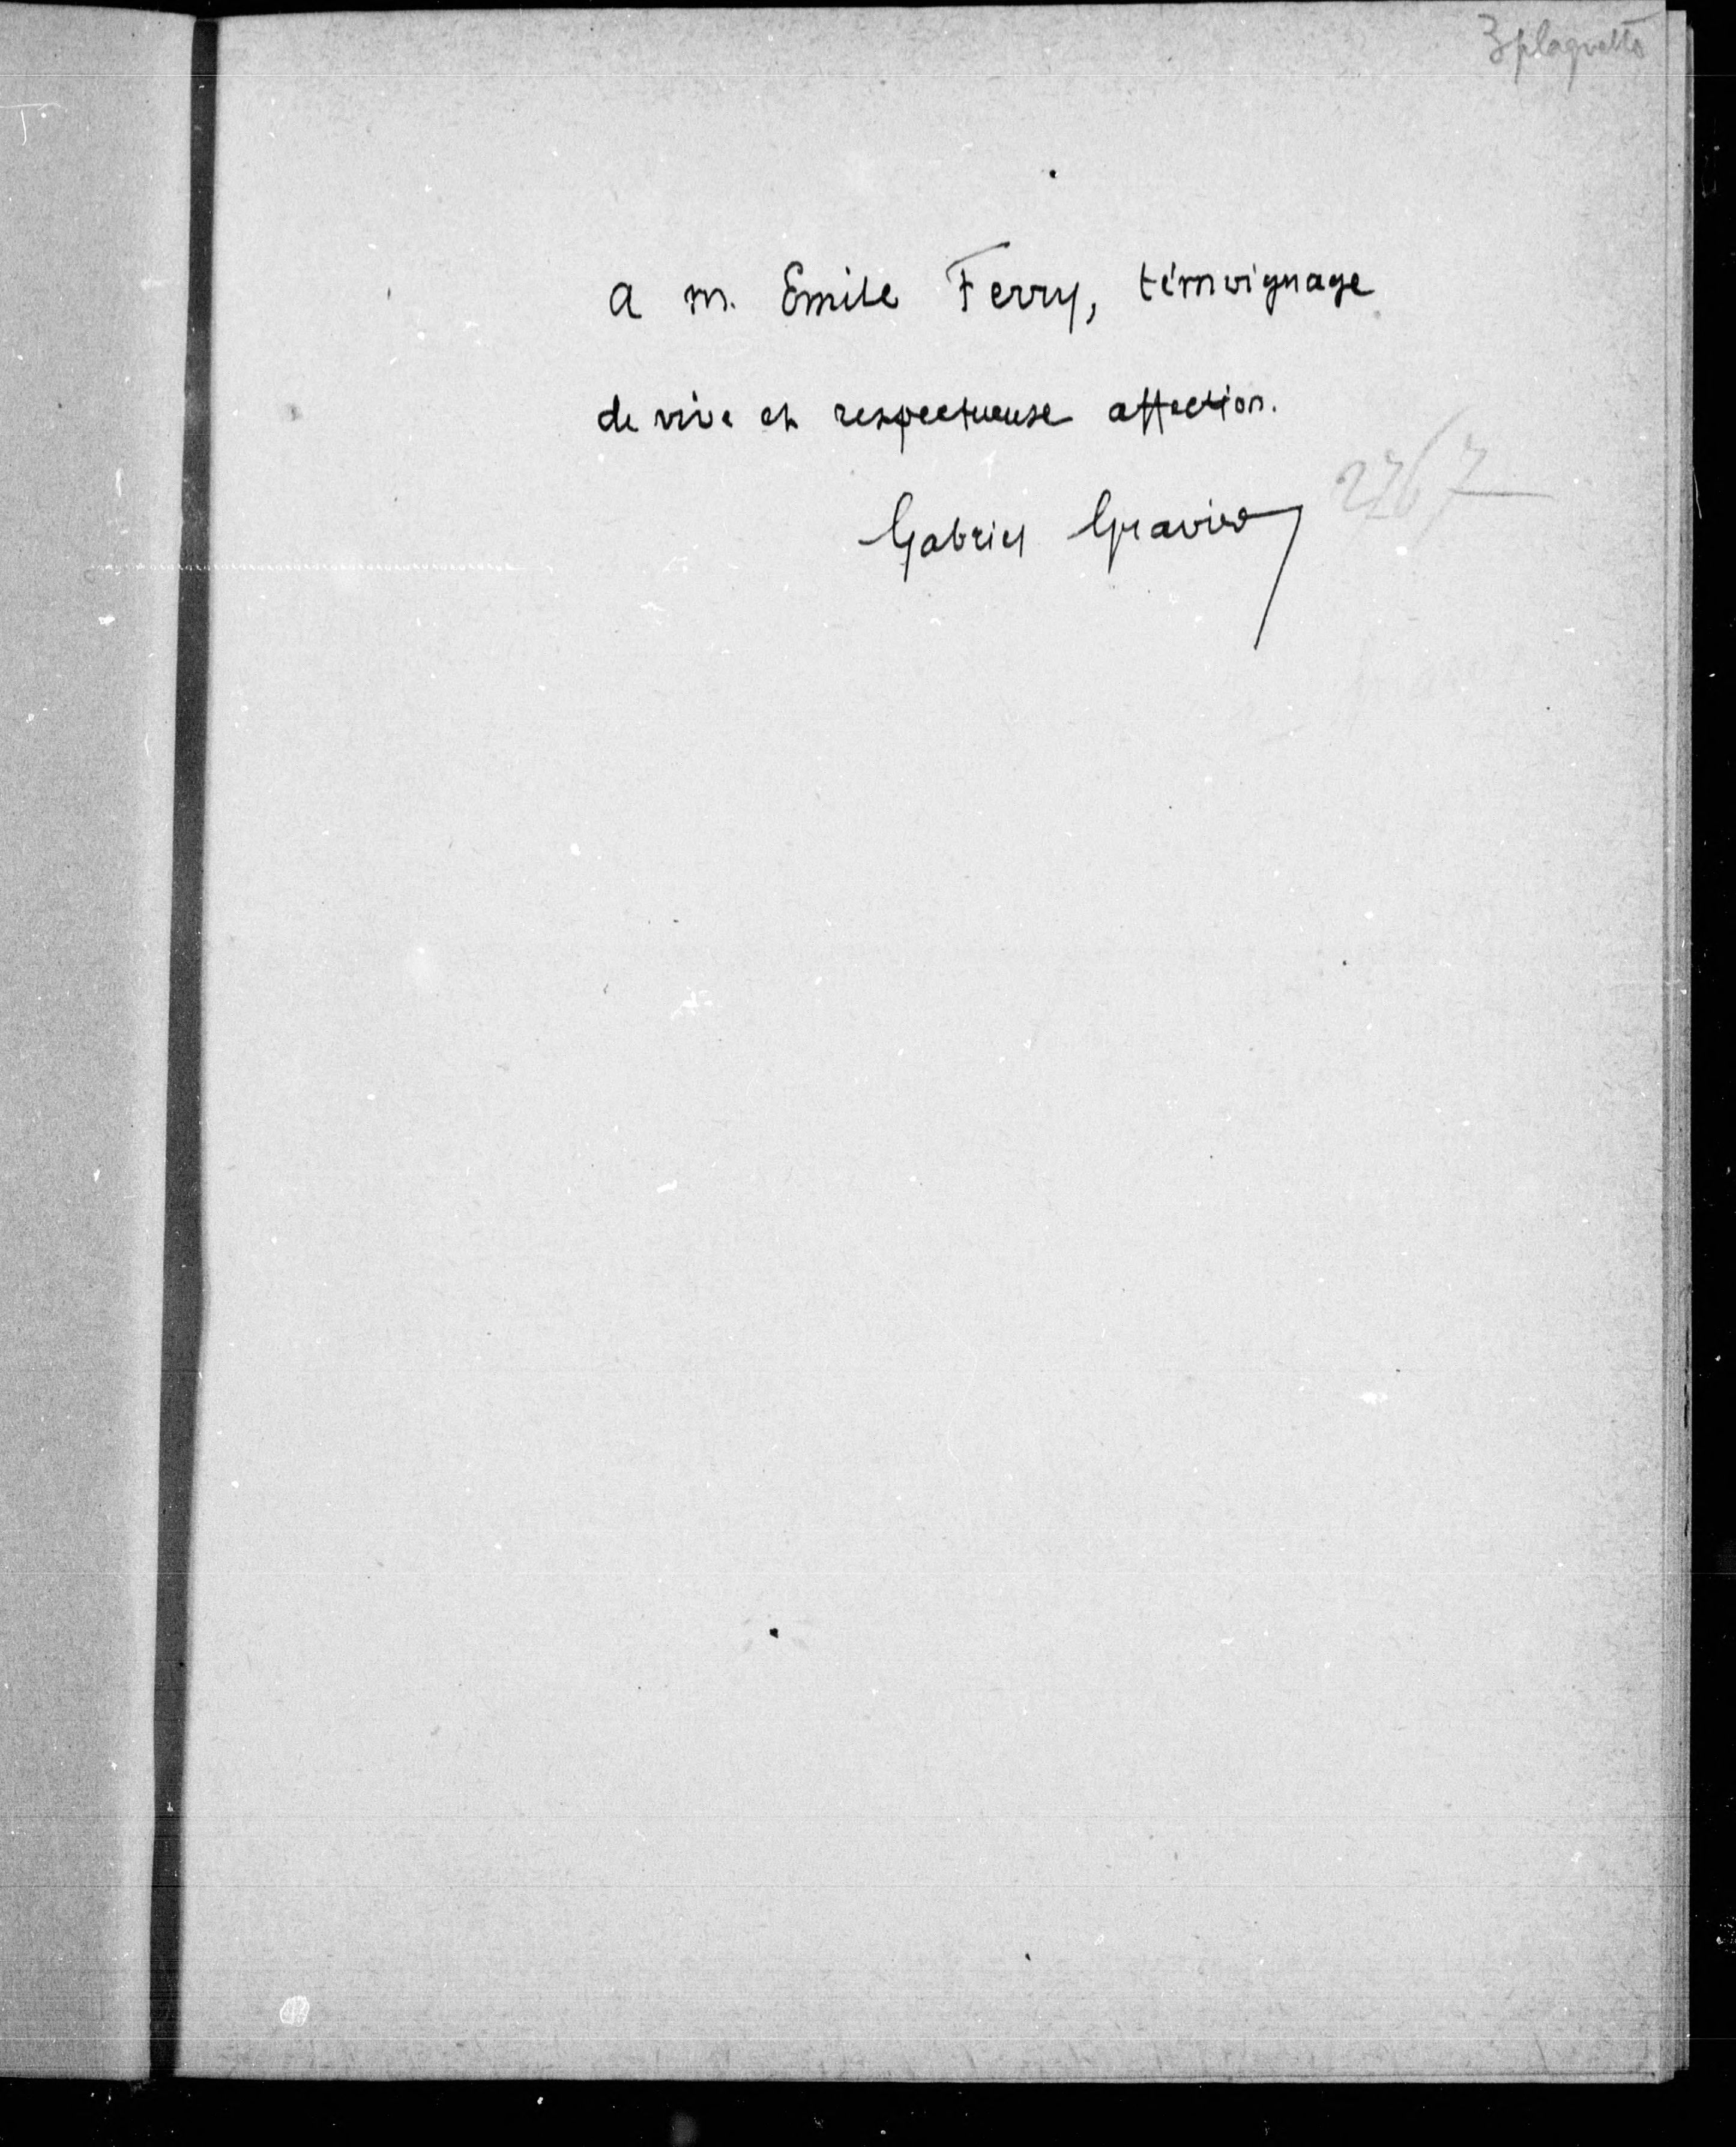 3 plaquettes
a m. Emile Ferry, témoignage
de vive et respectueuse affection.
Gabriel Gravier
2767